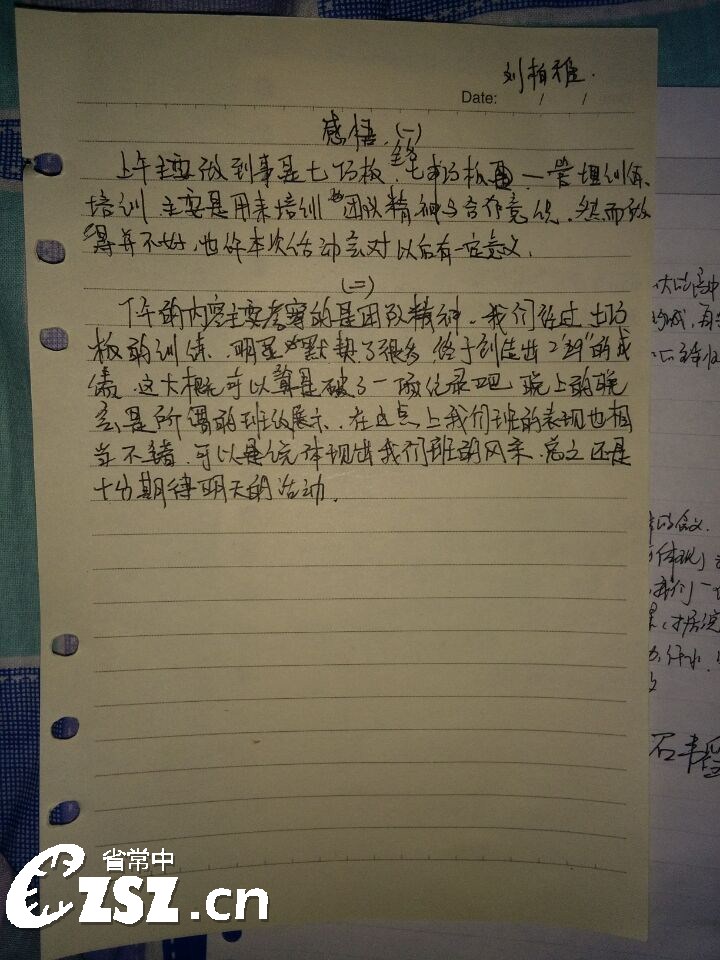 刘柏雅.
Date: / /
感悟.(一)
上午主要做到事是七巧板.
培训 主要是用来培训 团队精神与合作意识. 然而做
得并不好,也许本次活动会对以后有一定意义.
(二)
下午的内容主要考察的是团队精神. 我们经过七巧
板的训练. 明显 默契了很多 终于创造出 的成
绩. 这大概可以算是破了一项纪录吧 晚上的晚
会是所谓的班级展示. 在这点上我们班的表现也相
当不错. 可以是说体现出我们班的风采. 总之还是
十分期待明天的活动.
省常中
czsz.cn